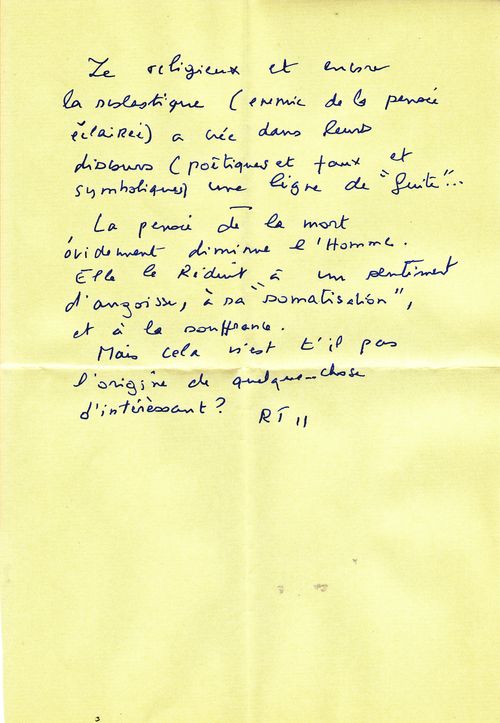 Le religieux et encore
la scolastique (ennemie de la pensée
éclairée) a créé dans leurs
discours (poëtiques et faux et
symboliques) une ligne de "fuite"...
La pensée de la mort
évidemment diminue l'Homme.
Elle le Réduit à un sentiment
d'angoisse, à sa "somatisation",
et à la souffrance.
Mais cela n'est t'il pas
l'origine de quelque-chose
d'intérèssant? RT 11